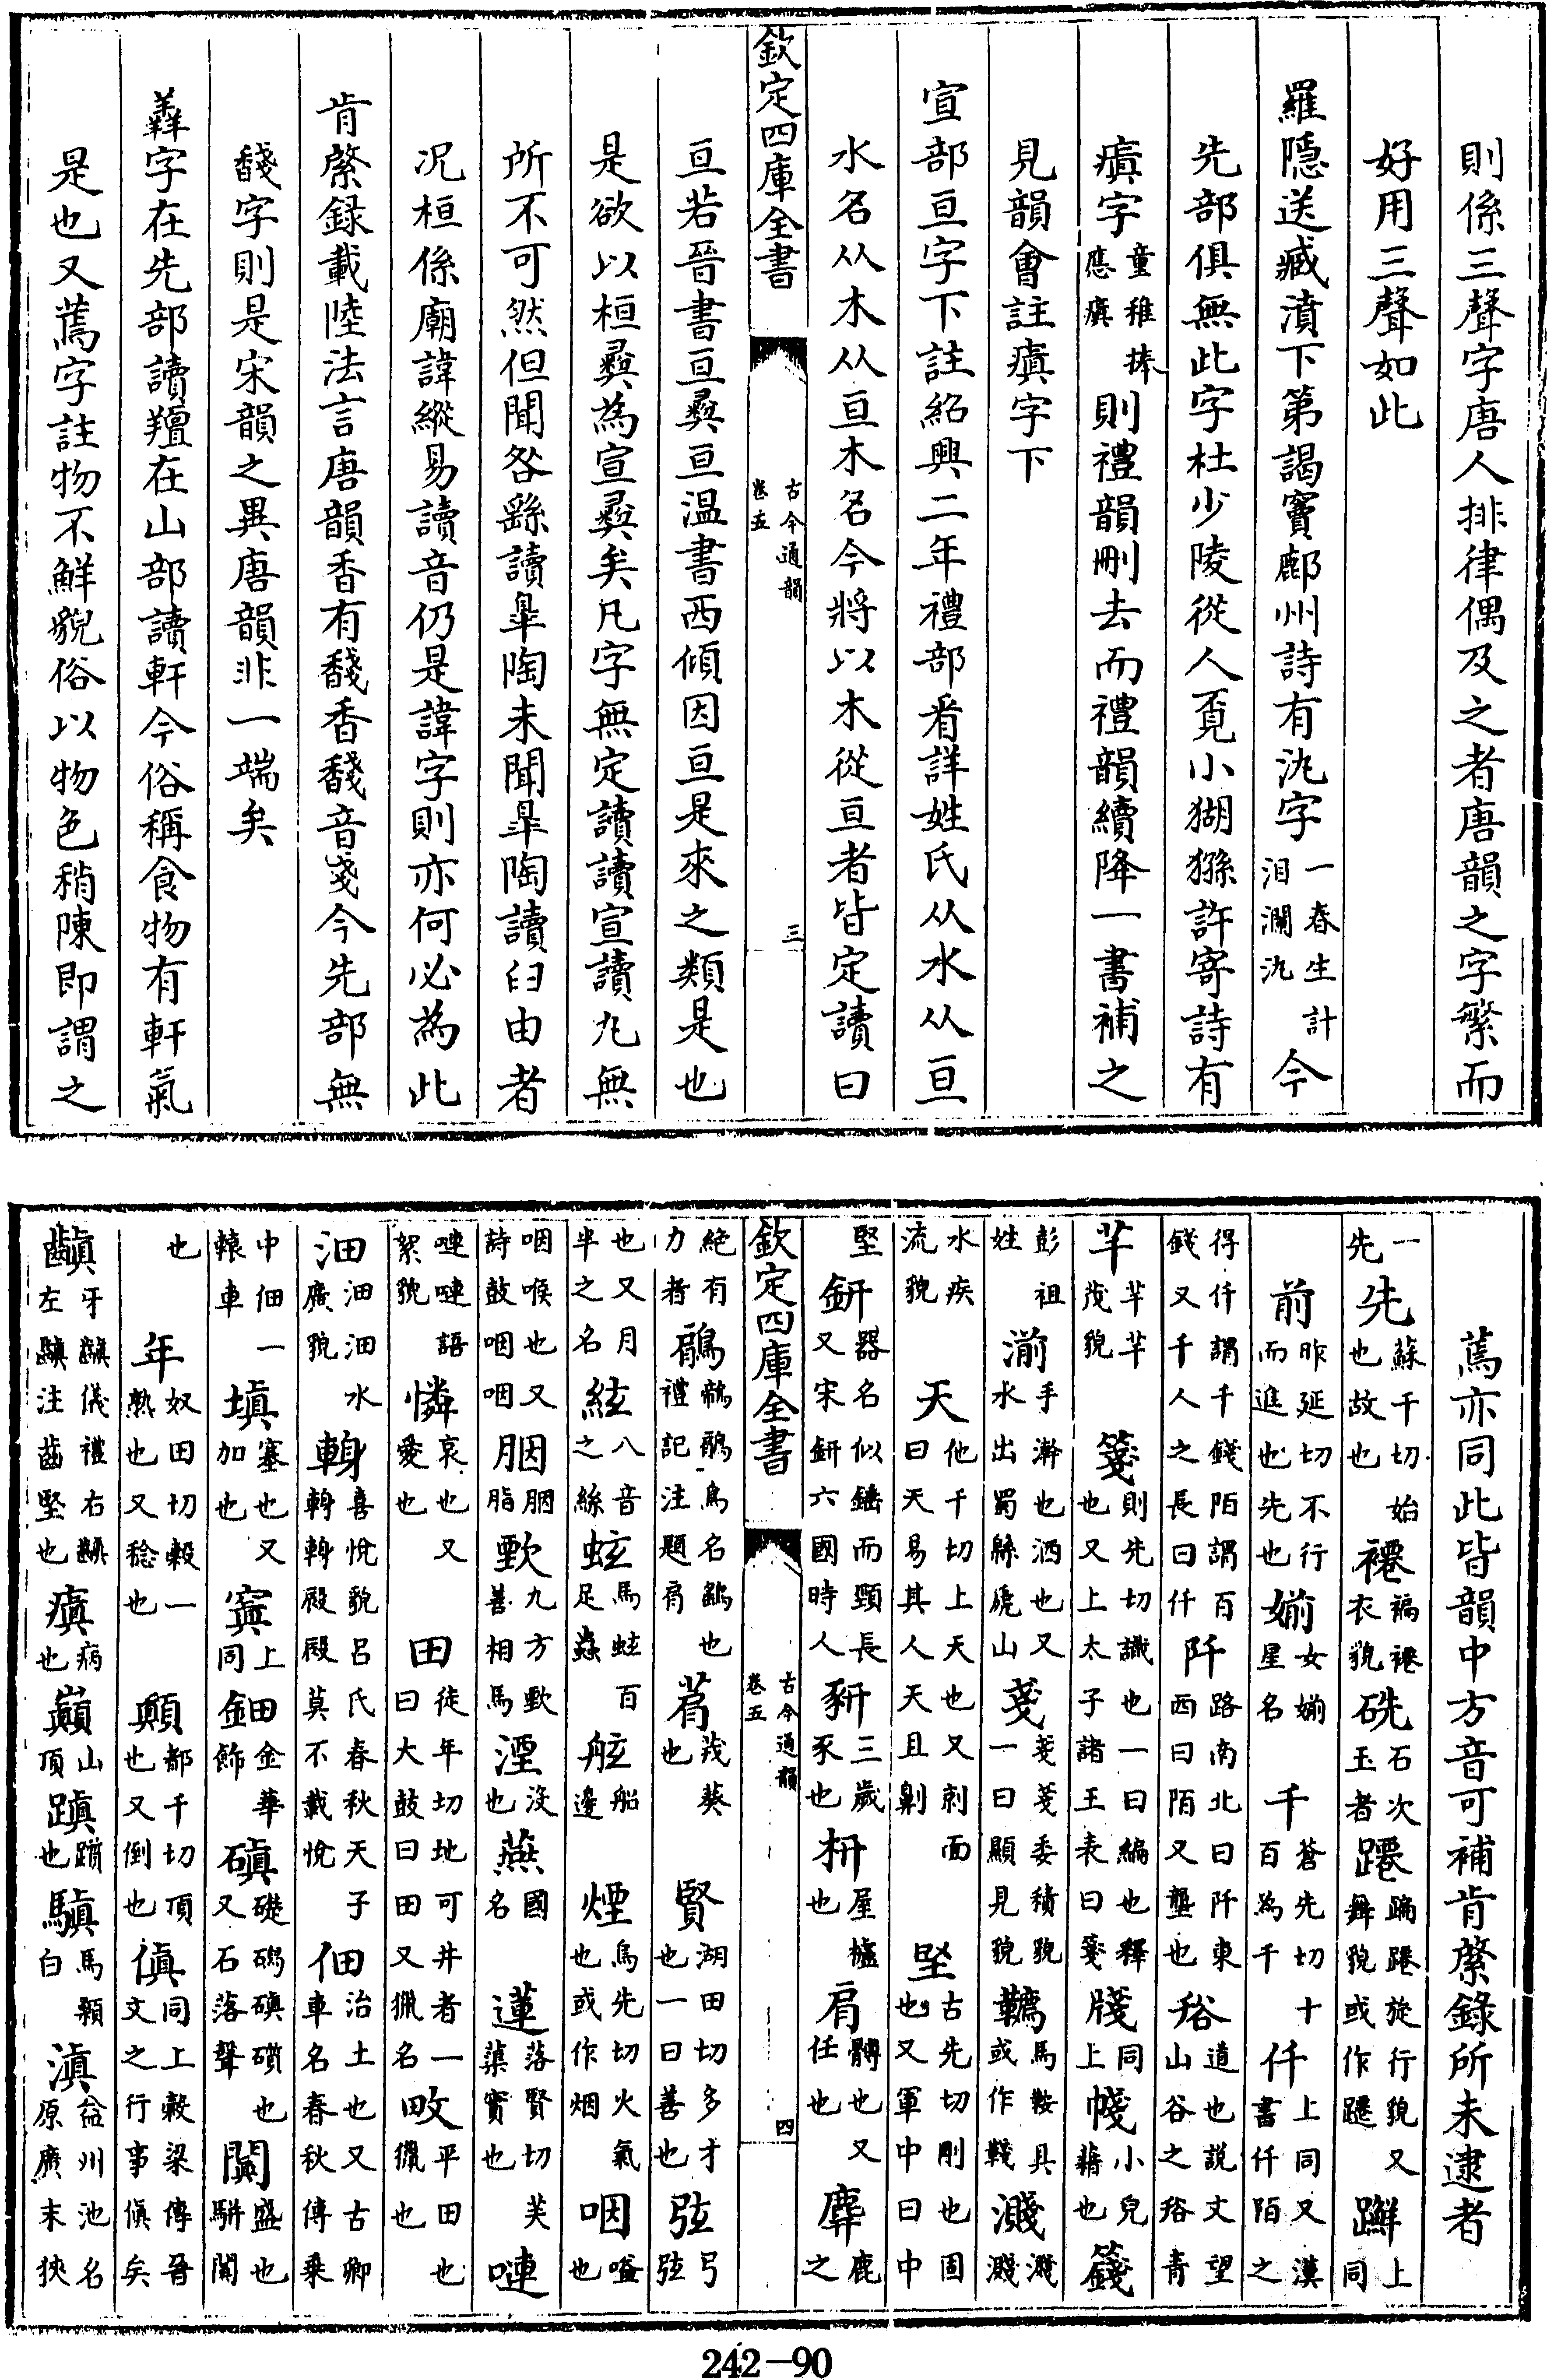 則係三聲字唐人排律偶及之者唐韻之字繁而
好用三聲如此
羅隱送臧濆下第謁竇鄜州詩有氿字一春生計泪瀾氿今
先部俱無此字杜少陵從人覓小猢猻許寄詩有
㾕字童稚捧應㾕則禮韻刪去而禮韻續降一書補之
見韻會註㾕字下
宣部亘字下註紹興二年禮部看詳姓氏从水从亘
水名从木从亘木名今將以木從亘者皆定讀曰
欽定四庫全書
古今通韻
卷五
三
亘若晉書亘彝亘温書西傾因亘是來之類是也
是欲以桓彝為宣彝矣凡字無定讀讀宣讀九無
所不可然但聞咎繇讀臯陶未聞臯陶讀臼由者
况桓係廟諱縱易讀音仍是諱字則亦何必為此
肯綮録載陸法言唐韻香有馢香馢音戔今先部無
馢字則是宋韻之異唐韻非一端矣
羴字在先部讀羶在山部讀軒今俗稱食物有軒氣
是也又蔫字註物不鮮貌俗以物色稍陳即謂之
蔫亦同此皆韻中方音可補肯綮錄所未逮者
一先先蘇千切始也故也褼褊褼衣貌硄石次玉者蹮蹁蹮旋行貌又舞貌或作躚躃上同
前昨延切不行而進也先也媊女媊星名千蒼先切十百為千仟上同又漢書仟陌之
得仟謂千錢陌謂百錢又千人之長曰仟阡路南北曰阡東西曰陌又壟也谸道也說文望山谷之谸青
芊芊芊茂貌箋則先切識也一曰編也釋也又上太子諸王表曰箋牋上同幭小兒藉也籛
彭祖姓湔手澣也洒也又水出蜀綿虒山戔戔戔委積貌一曰顯見貌韉馬鞍具或作韀濺濺濺
水疾流貌天他千切上天也又剠面曰天易其人天且劓堅古先切剛也固也又軍中曰中
堅鈃器名似鍾而頸長又宋鈃六國時人豣三歲豕也枅屋櫨也肩髆也又任也麉鹿之
欽定四庫全書
古今通韻
卷五
四
絶有力者鵳鶺鵳鳥名鷂也禮記注題肩菺茂葵也賢湖田切多才也一曰善也弦弓弦
也又月半之名絃八音之絲蚿馬蚿百足蟲舷船邊煙烏先切火氣也或作烟咽嗌也
咽喉也又詩鼓咽咽胭胭脂甄九方甄善相馬湮沒也燕國名蓮落賢切芙蕖實也嗹
嗹嗹語絮貌憐哀也又愛也田徒年切地可井者一曰大鼓曰田又獵名畋平田也獵也
沺沺沺水廣貌䡩喜悅貌呂氏春秋天子䡩䡩殿殿莫不載悅佃治土也又古卿車名春秋傳乗
中佃一轅車塡塞也又加也窴上同鈿金華飾磌礎磌也又石落聲闐盛也駢闐
也年奴田切穀一熟也又稔也顚都千切頂也又倒也傎同上穀梁傳晉文之行事傎矣
齻牙齻儀禮右齻左齻注齒堅也瘨病也巔山頂蹎蹟也驒馬額白滇益州池名原廣末狹
242-90